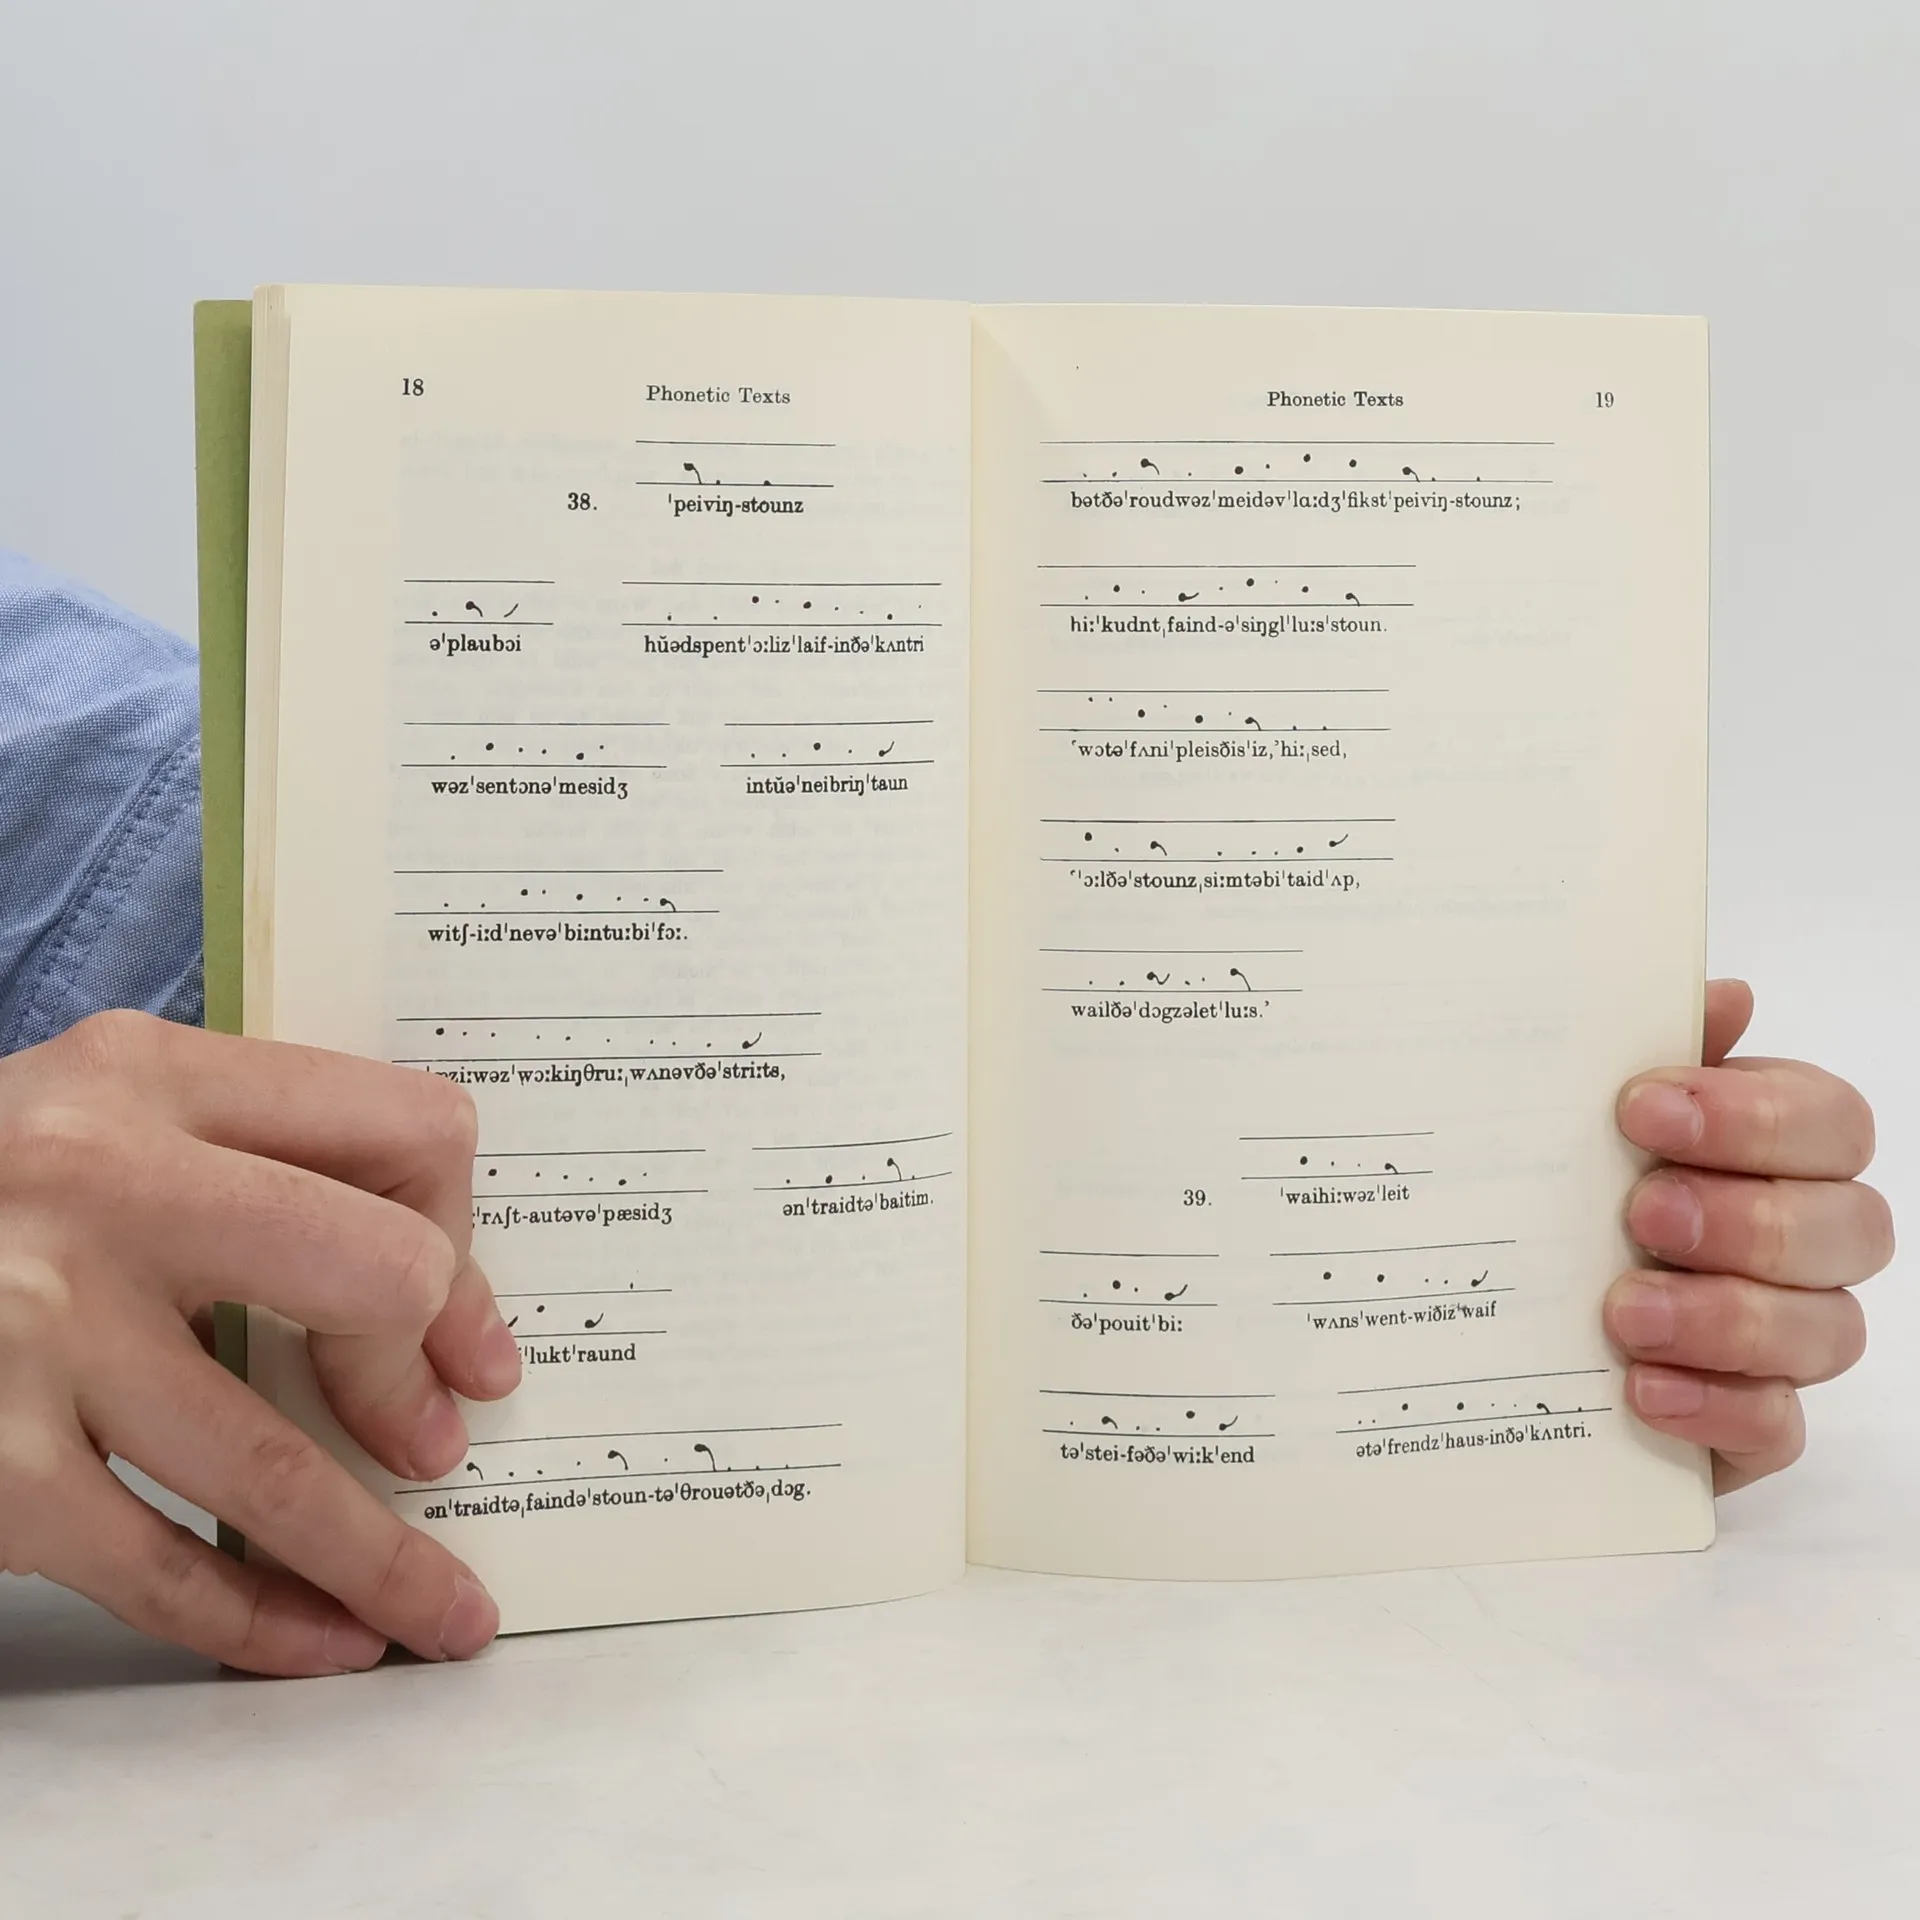 18 Phonetic Texts
38. ˈpeiviŋ-stounz
əˈplaubɔi hŭədspentˈɔːlizˈlaif-inðəˈkʌntri
wəzˈsentɔnəˈmesidʒ intŭəˈneibriŋˈtaun
witʃ-iːdˈnevəˈbiːntuːbiˈfɔː.
ziːwəzˈwɔːkiŋθruːˌwʌnəvðəˈstriːts,
ˈrʌʃt-autəvəˈpæsidʒ ənˈtraidtəˈbaitim.
ˈluktˈraund
ənˈtraidtəˌfaindəˈstoun-təˈθrouətðəˌdɔg.
Phonetic Texts 19
bətðəˈroudwəzˈmeidəvˈlɑːdʒˈfikstˈpeiviŋ-stounz;
hiːˈkudntˌfaind-əˈsiŋglˈluːsˈstoun.
‘wɔtəˈfʌniˈpleisðisˈiz,’hiːˌsed,
‘ˈɔːlðəˈstounzˌsiːmtəbiˈtaidˈʌp,
wailðəˈdɔgzəletˈluːs.’
39. ˈwaihiːwəzˈleit
ðəˈpouitˈbiː ˈwʌnsˈwent-wiðizˈwaif
təˈstei-fəðəˈwiːkˈend ətəˈfrendzˈhaus-inðəˈkʌntri.